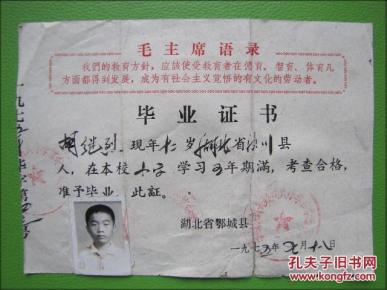 毛主席语录
我們的教育方針，应該使受教育者在德育、智育、体育几
方面都得到发展，成为有社会主义觉悟的有文化的劳动者。
毕业证书
胡继烈 现年 岁 湖北省汉川县
人，在本校 小学 学习 五年期滿，考查合格，
准予毕业。此証。
湖北省鄂城县
一九七五年七月十八日